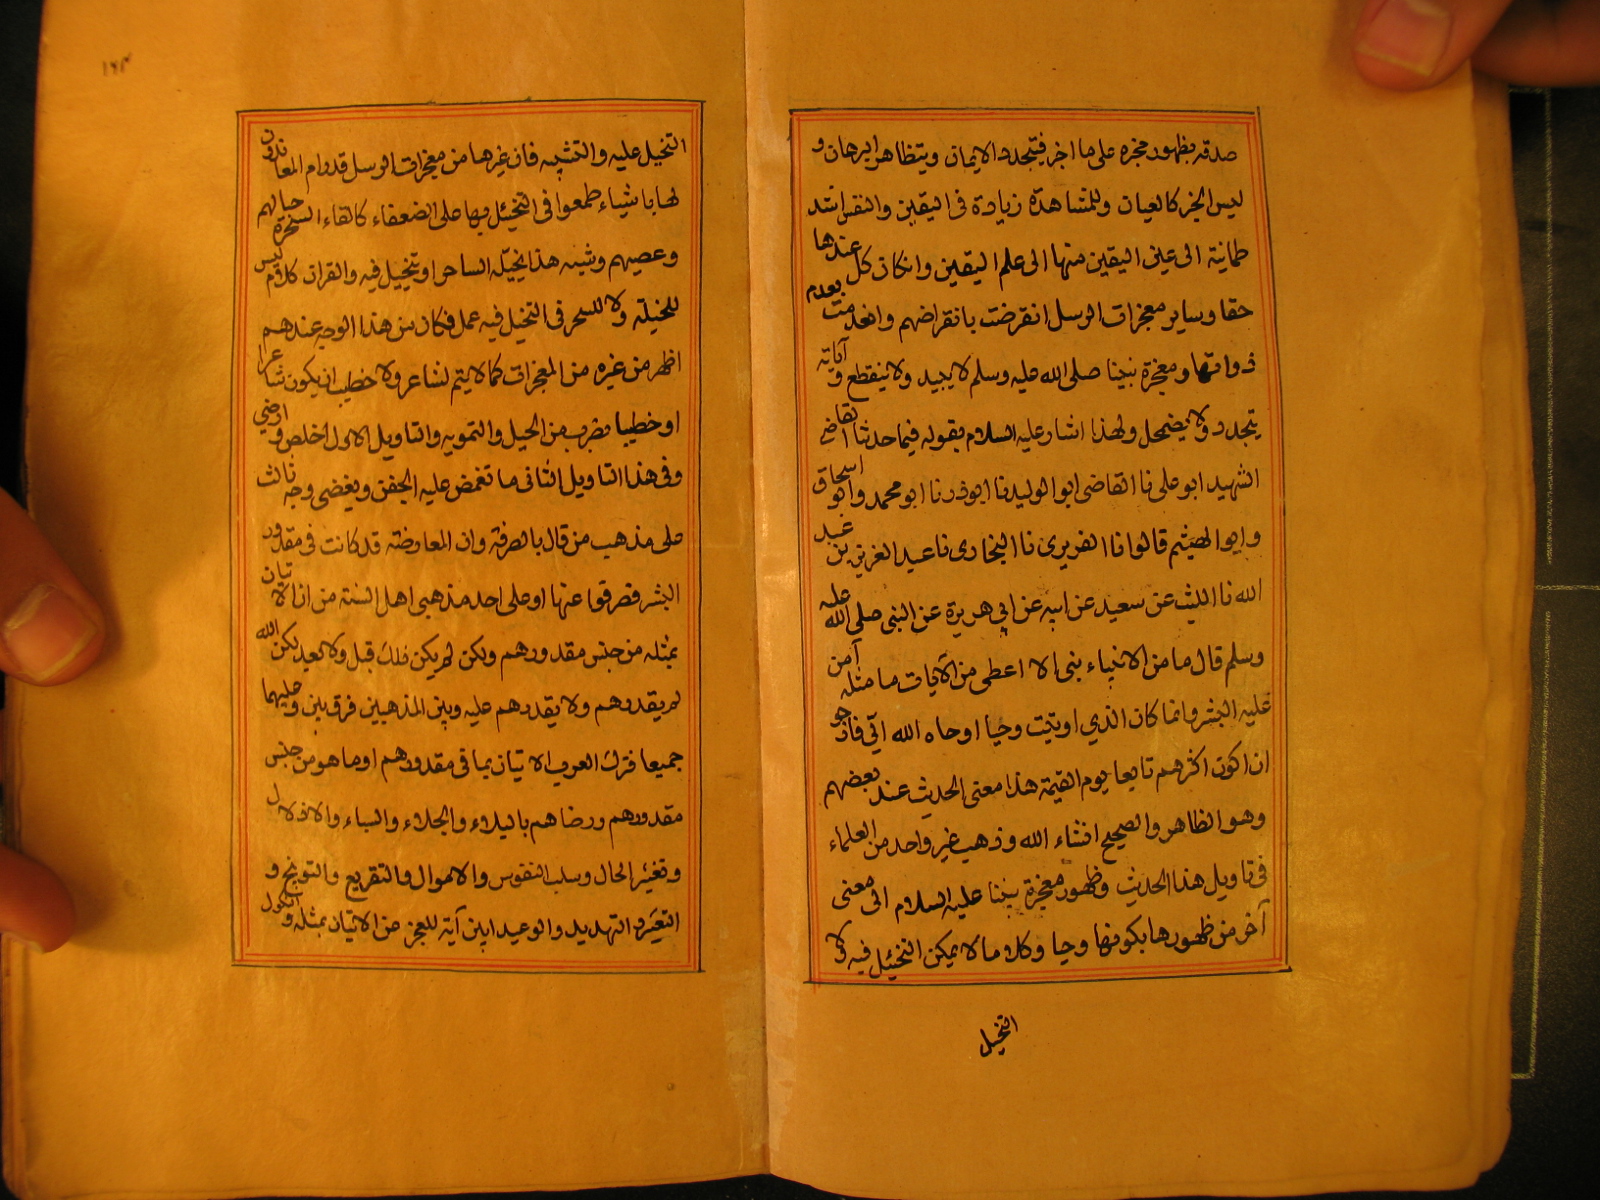 صدقه بظهور مخبره على ما اخبر فيتجدد الايمان ويتظاهر البرهان و
ليس الخبر كالعيان وللمشاهدة زيادة فى اليقين والنفس اشد
طمانية الى عين اليقين منها الى علم اليقين وانكان كل عندها
حقا وساير معجزات الرسل انقرضت بانقراضهم وانعدمت بعدم
ذواتها ومعجزة نبينا صلى الله عليه وسلم لا يبيد ولا ينقطع و آياته
يتجدد ولا يضمحل ولهذا اشار عليه السلام بقوله فيما حدثنا القاضى
الشهيد ابو على نا القاضى ابو الوليد نا ابوذر نا ابو محمد وابو اسحاق
وابو الهيثم قالوا نا الفربرى نا البخارى نا عبد العزيز بن عبد
الله نا الليث عن سعيد عن ابيه عن ابي هريرة عن النبى صلى الله عليه
وسلم قال ما من الانبياء نبى الا اعطى من الآيات ما مثله آمن
عليه البشر وانما كان الذي اوتيت وحيا اوحاه الله الىّ فارجو
ان اكون اكثرهم تابعا يوم القيمة هذا معنى الحديث عند بعضهم
وهو الظاهر والصحيح انشاء الله وذهب غير واحد من العلماء
فى تاويل هذا الحديث وظهور معجزة نبينا عليه السلام الى معنى
آخر من ظهورها بكونها وحيا وكلاما لا يمكن التخيّل فيه ولا
التخيل
١٦٣
التخيل عليه والتشبيه فان غيرها من معجزات الرسل قد رام المعاندون
لها باشياء طمعوا فى التخيّل بها على الضعفاء كالقاء السحرة حبالهم
وعصيهم وشبه هذا يخيّله الساحر او يتخيل فيه والقران كلام ليس
للحيلة ولا للسحر فى التخيل فيه عمل فكان من هذا الوجه عندهم
اظهر من غيره من المعجزات كما لا يتم لشاعر ولا خطيب ان يكون شاعرا
او خطيبا بضرب من الحيل والتمويه والتاويل الاول اخلص وارضى
وفى هذا التاويل الثانى ما تغمض عليه الجفن ويغضى وجه ثالث
على مذهب من قال بالصرفة وان المعارضة قد كانت فى مقدور
البشر فصرفوا عنها او على احد مذهبى اهل السنة من ان الاتيان
بمثله من جنس مقدورهم ولكن لم يكن ذلك قبل ولا بعد يكن الله
لم يقدرهم ولا يقدرهم عليه وبين المذهبين فرق بين وعليهما
جميعا فترك العرب الاتيان بما فى مقدورهم او ما هو من جنس
مقدورهم ورضاهم بالبلاء والجلاء والسباء والاذلال
وتغيّر الحال وسلب النفوس والاموال والتقريع والتوبيخ و
التعجيز والتهديد والوعيد ابين آية للعجز عن الاتيان بمثله والنكول